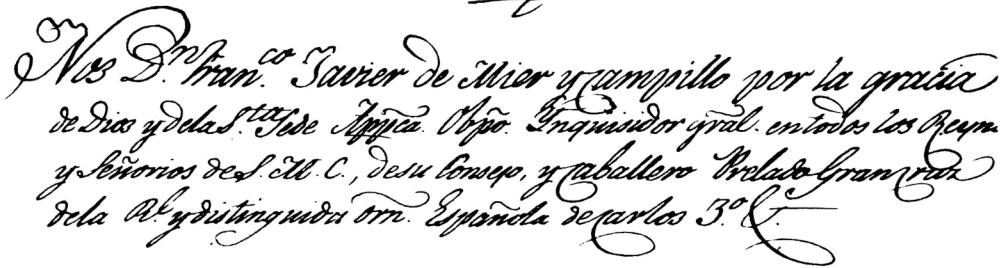 Nos Dn. Franco. Javier de Mier y Campillo por la gracia
de Dios y de la Sta. Sede Appca. Obpo. Inquisidor gral. en todos los Reyn.
y Señorios de S. M. C., de su Consejo, y Caballero Prelado Gran cruz
de la Rl. y distinguida Orn. Española de Carlos 3.o &.